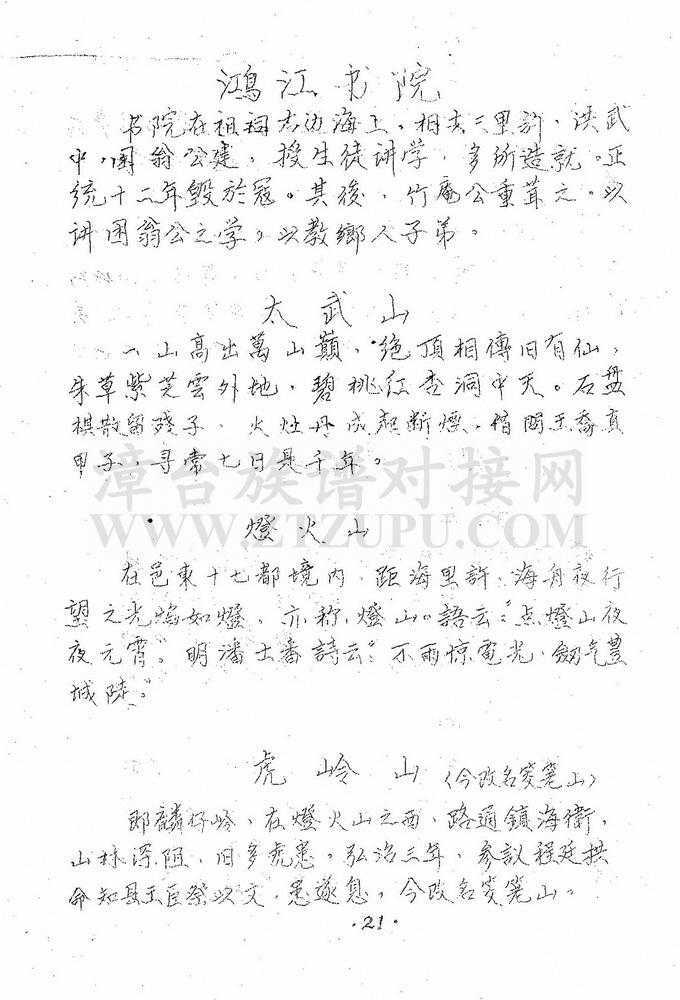 鴻江书院
书院在祖祠左边海上。相去三里許，洪武
中，困翁公建，授生徒讲学，多所造就。正
统十二年毀於寇。其後，竹庵公重葺之。以
讲困翁公之学，以教鄉人子弟。
太武山
一山高出萬山巔，绝頂相傳旧有仙，
朱草紫芝雲外地，碧桃红杏洞中天。石盘
棋散留殘子，火灶丹成起断煙。借問王喬真
甲子，寻常七日是千年。
漳台族谱对接网
WWW.ZTZUPU.COM
燈火山
在邑東十七都境内，距海里許，海舟夜行
望之光焰如燈，亦称，燈山。語云："点燈山夜
夜元宵"。明潘士香詩云："不雨惊電光，劔气豊
城陡。"
虎岭山（今改名篼山）
即麟仔岭，在燈火山之西，路通鎮海衛，
山林深阻，旧多虎患，弘治三年，參議程廷拱
命知县王臣祭以文，患遂息，今改名篼山。
·21·